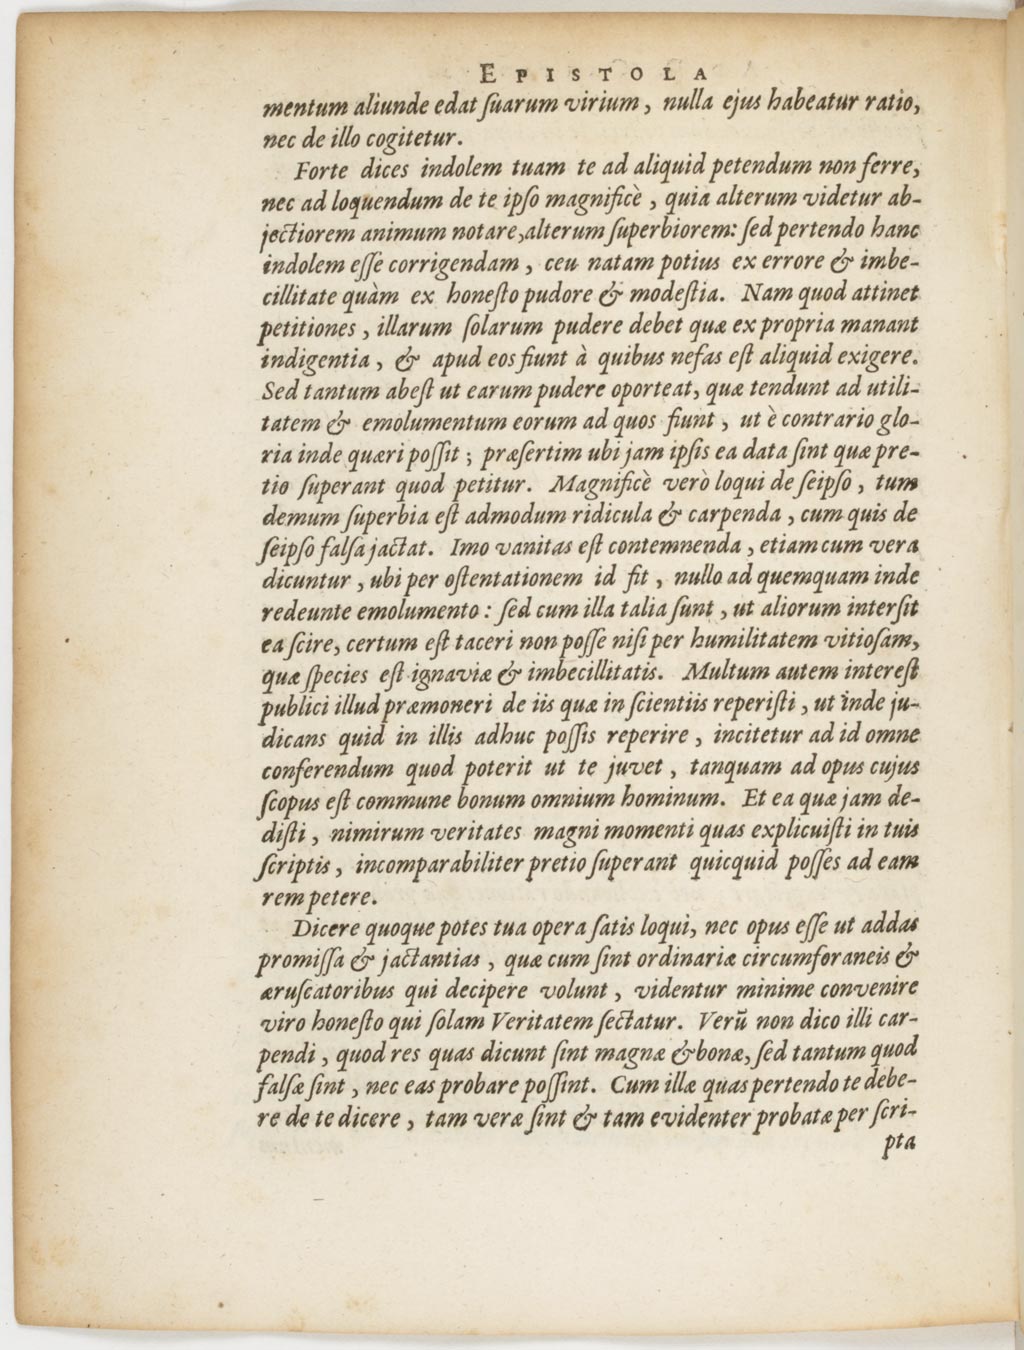 EPISTOLA
mentum aliunde edat ſuarum virium, nulla ejus habeatur ratio,
nec de illo cogitetur.
Forte dices indolem tuam te ad aliquid petendum non ferre,
nec ad loquendum de te ipſo magnificè, quia alterum videtur ab-
jectiorem animum notare, alterum ſuperbiorem: ſed pertendo hanc
indolem eſſe corrigendam, ceu natam potius ex errore & imbe-
cillitate quàm ex honeſto pudore & modeſtia. Nam quod attinet
petitiones, illarum ſolarum pudere debet quæ ex propria manant
indigentia, & apud eos fiunt à quibus nefas eſt aliquid exigere.
Sed tantum abeſt ut earum pudere oporteat, quæ tendunt ad utili-
tatem & emolumentum eorum ad quos fiunt, ut è contrario glo-
ria inde quæri poſſit; præſertim ubi jam ipſis ea data ſint quæ pre-
tio ſuperant quod petitur. Magnificè verò loqui de ſeipſo, tum
demum ſuperbia eſt admodum ridicula & carpenda, cum quis de
ſeipſo falſa jactat. Imo vanitas eſt contemnenda, etiam cum vera
dicuntur, ubi per oſtentationem id fit, nullo ad quemquam inde
redeunte emolumento: ſed cum illa talia ſunt, ut aliorum interſit
ea ſcire, certum eſt taceri non poſſe niſi per humilitatem vitioſam,
quæ ſpecies eſt ignaviæ & imbecillitatis. Multum autem intereſt
publici illud præmoneri de iis quæ in ſcientiis reperiſti, ut inde ju-
dicans quid in illis adhuc poſſis reperire, incitetur ad id omne
conferendum quod poterit ut te juvet, tanquam ad opus cujus
ſcopus eſt commune bonum omnium hominum. Et ea quæ jam de-
diſti, nimirum veritates magni momenti quas explicuiſti in tuis
ſcriptis, incomparabiliter pretio ſuperant quicquid poſſes ad eam
rem petere.
Dicere quoque potes tua opera ſatis loqui, nec opus eſſe ut addas
promiſſa & jactantias, quæ cum ſint ordinariæ circumforaneis &
æruſcatoribus qui decipere volunt, videntur minime convenire
viro honeſto qui ſolam Veritatem ſectatur. Verũ non dico illi car-
pendi, quod res quas dicunt ſint magnæ & bonæ, ſed tantum quod
falſæ ſint, nec eas probare poſſint. Cum illæ quas pertendo te debe-
re de te dicere, tam veræ ſint & tam evidenter probatæ per ſcri-
pta